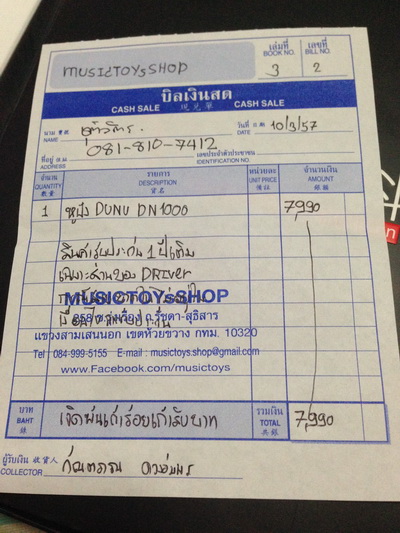 MUSICTOYsSHOP
เล่มที่ BOOK NO. 3
เลขที่ BILL NO. 2
บิลเงินสด
CASH SALE 現兌單 CASH SALE
นาม NAME
วันที่ DATE 10/3/57
081-810-7412
ที่อยู่ ADDRESS
เลขประจำตัวประชาชน IDENTIFICATION NO.
จำนวน QUANTITY 數量
รายการ DESCRIPTION 貨名
หน่วยละ UNIT PRICE 價銀
จำนวนเงิน AMOUNT 銀額
1 หูฟัง DUNU DN1000 7,990
สินค้ารับประกัน 1 ปีเต็ม
เฉพาะส่วนของ DRIVER
MUSICTOYsSHOP
ถ.รัชดา-สุทธิสาร
แขวงสามเสนนอก เขตห้วยขวาง กทม. 10320
Tel : 084-999-5155 E-mail : musictoys.shop@gmail.com
www.Facebook.com/musictoys
บาท BAHT 銖 เจ็ดพันเก้าร้อยเก้าสิบบาท รวมเงิน TOTAL 共銀 7,990
ผู้รับเงิน 收貨人
COLLECTOR